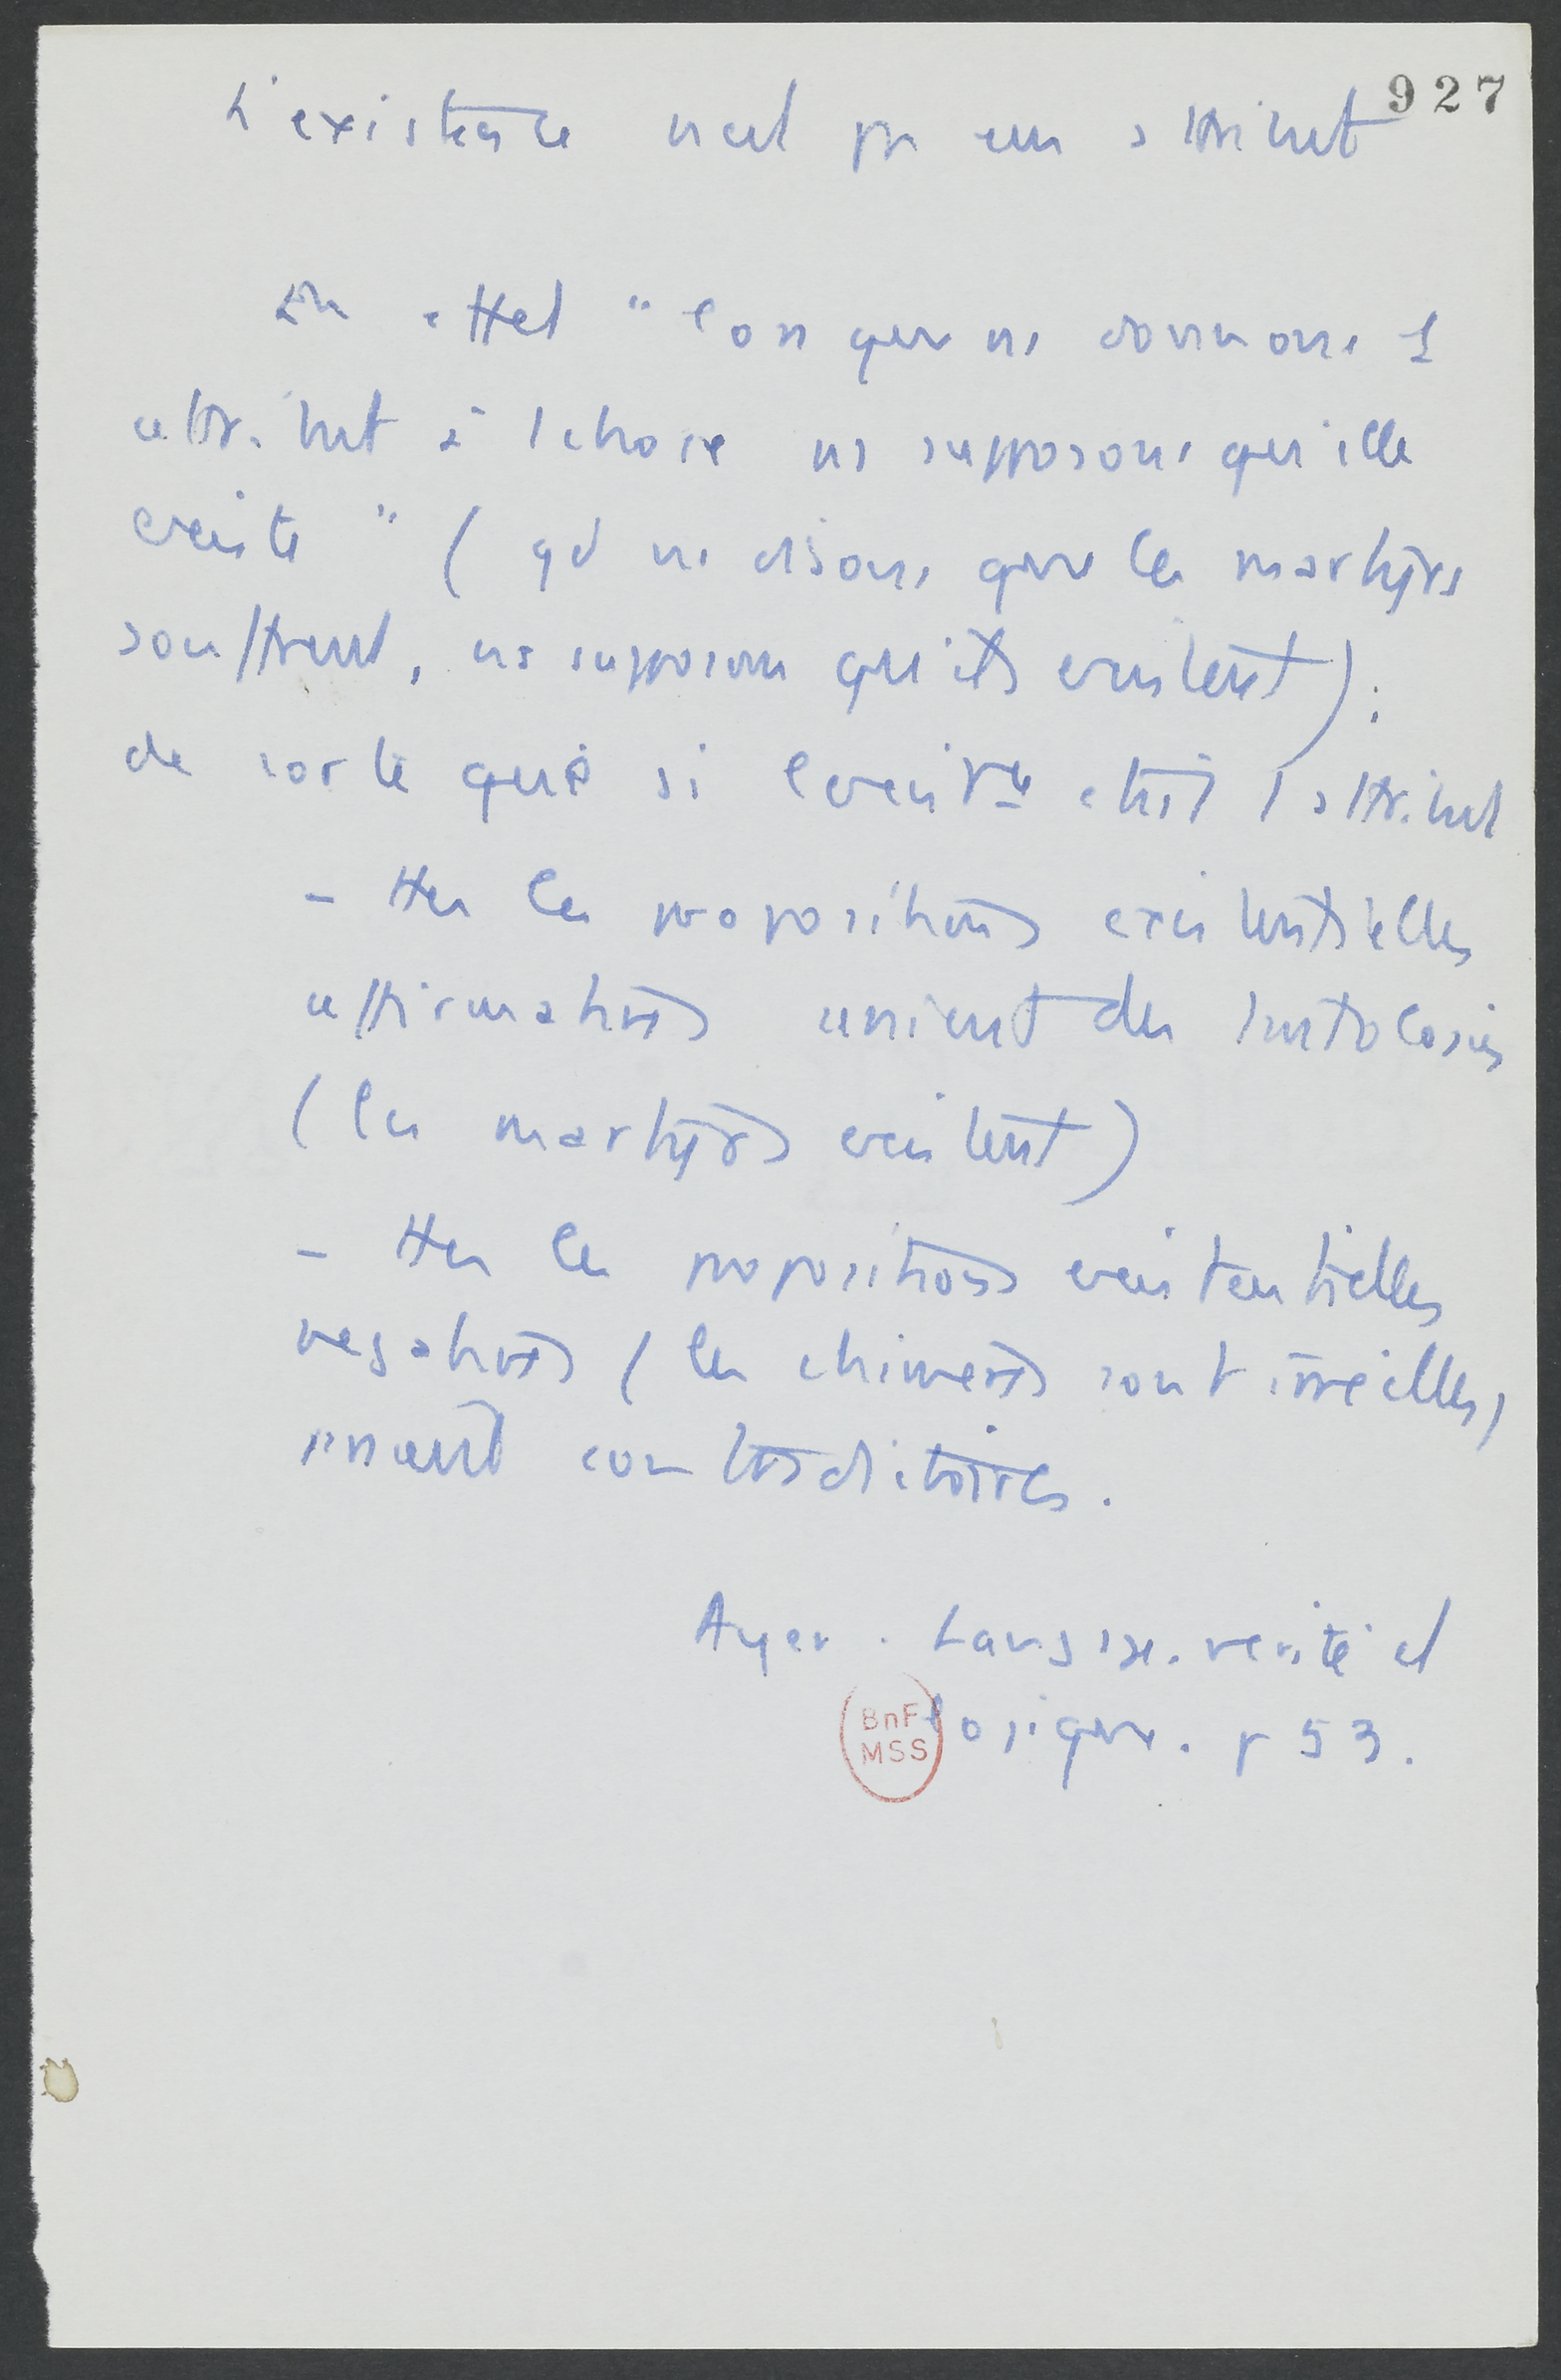 927
L'existence n'est pas un attribut
En effet "lorsque ns donnons 1
attribut à 1 chose ns supposons qu'elle
existe" (qd ns disons que les martyrs
souffrent, ns supposons qu'ils existent);
de sorte que si l'existence était 1 attribut
- ttes les propositions existentielles
affirmatives seraient des tautologies
(les martyrs existent)
- ttes les propositions existentielles
negatives (les chimeres sont irréelles)
seraient contradictoires.
Ayer. Langage. verité et
logique. p 53.
BnF
MSS